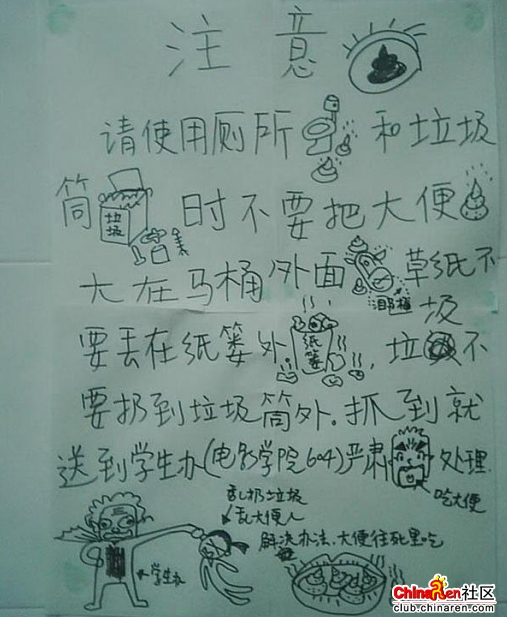 注意
请使用厕所和垃圾
筒 垃圾 时不要把大便
大在马桶外面 草纸不
马桶 圾
要丢在纸篓外.纸篓 垃 不
要扔到垃圾筒外.抓到就
送到学生办(电影学院604)严肃处理.
吃大便
乱扔垃圾
乱大便人
解决办法:大便往死里吃
学生办
ChinaRen社区
club.chinaren.com